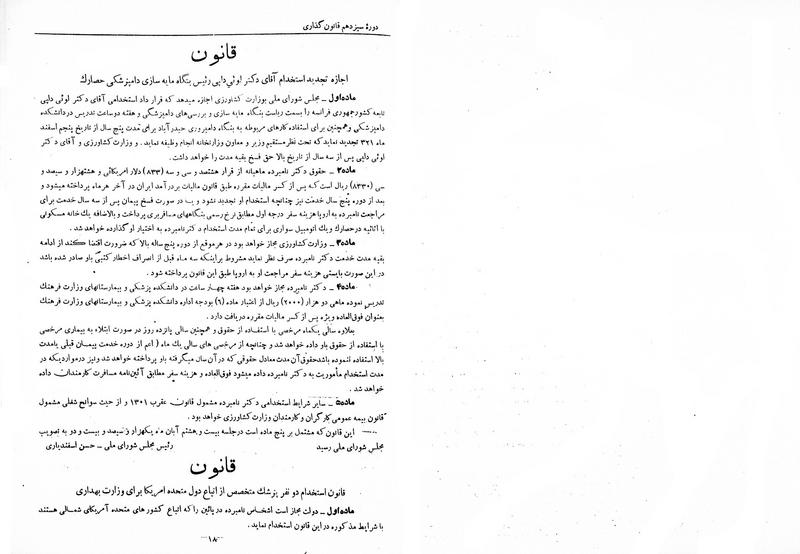 دورهٔ سیزدهم قانون گذاری
قانون
اجازه تجدید استخدام آقای دکتر لوئی دلپی رئیس بنگاه مایه سازی دامپزشکی حصارک
ماده اول ـ مجلس شورای ملی بوزارت کشاورزی اجازه میدهد که قرار داد استخدامی آقای دکتر لوئی دلپی
تابعه کشور جمهوری فرانسه را بسمت ریاست بنگاه مایه سازی و بررسی‌های دامپزشکی و هفته دو ساعت تدریس در دانشکده
دامپزشکی و همچنین برای استفاده کارهای مربوطه به بنگاه دامپروری حیدرآباد برای مدت پنج سال از تاریخ پنجم اسفند
ماه ۳۲۱ تجدید نماید که تحت نظر مستقیم وزیر و معاون وزارتخانه انجام وظیفه نماید . و وزارت کشاورزی و آقای دکتر
لوئی دلپی پس از سه سال از تاریخ بالا حق فسخ بقیه مدت را خواهد داشت .
ماده ۲ ـ حقوق دکتر نامبرده ماهیانه از قرار هشتصد و سی و سه (۸۳۳) دلار امریکائی و هشتهزار و سیصد و
سی (۸۳۳۰) ریال است که پس از کسر مالیات مقرره طبق قانون مالیات بر درآمد ایران در آخر هر ماه پرداخته میشود و
بعد از دوره پنج سال خدمت نیز چنانچه استخدام او تجدید نشود و یا در صورت فسخ پیمان پس از سه سال خدمت برای
مراجعت نامبرده به اروپا هزینه سفر درجه اول مطابق نرخ رسمی بنگاههای مسافربری پرداخت و بالاضافه یک خانه مسکونی
با اثاثیه در حصارک و یک اتومبیل سواری برای تمام مدت استخدام دکتر نامبرده به اختیار او گذارده خواهد شد .
ماده ۳ ـ وزارت کشاورزی مجاز خواهد بود در هر موقع از دوره پنج ساله بالا که ضرورت اقتضا کند از ادامه
بقیه مدت خدمت دکتر نامبرده صرف نظر نماید مشروط براینکه سه ماه قبل از انصراف اخطار کتبی باو صادر شده باشد
در این صورت بایستی هزینه سفر مراجعت او به اروپا طبق این قانون پرداخته شود .
ماده ۴ ـ دکتر نامبرده مجاز خواهد بود هفته چهار ساعت در دانشکده پزشکی و بیمارستانهای وزارت فرهنگ
تدریس نموده ماهی دو هزار (۲۰۰۰) ریال از اعتبار ماده (۶) بودجه اداره دانشکده پزشکی و بیمارستانهای وزارت فرهنگ
بعنوان فوق‌العاده ویژه پس از کسر مالیات مقرره دریافت دارد .
بعلاوه سالی یکماه مرخصی با استفاده از حقوق و همچنین سالی پانزده روز در صورت ابتلاء به بیماری مرخصی
با استفاده از حقوق باو داده خواهد شد و چنانچه از مرخصی های سالی یک ماه ( اعم از دوره خدمت پیمان قبلی یا مدت
بالا استفاده ننموده باشد حقوق آن مدت معادل حقوقی که در آن سال میگرفته باو پرداخته خواهد شد و نیز در مواردیکه در
مدت استخدام مأموریت به دکتر نامبرده داده میشود فوق‌العاده و هزینه سفر مطابق آئین‌نامه مسافرت کارمندان داده
خواهد شد .
ماده ۵ ـ سایر شرایط استخدامی دکتر نامبرده مشمول قانون عقرب ۱۳۰۱ و از حیث سوانح شغلی مشمول
قانون بیمه عمومی کارگران و کارمندان وزارت کشاورزی خواهد بود .
این قانون که مشتمل بر پنج ماده است در جلسه بیست و هشتم آبان ماه یکهزار و سیصد و بیست و دو به تصویب
مجلس شورای ملی رسید رئیس مجلس شورای ملی ـ حسن اسفندیاری
قانون
قانون استخدام دو نفر پزشک متخصص از اتباع دول متحده امریکا برای وزارت بهداری
ماده اول ـ دولت مجاز است اشخاص نامبرده در پائین را که اتباع کشور های متحده آمریکای شمالی هستند
با شرایط مذکوره در این قانون استخدام نماید .
ـ۱۸ـ